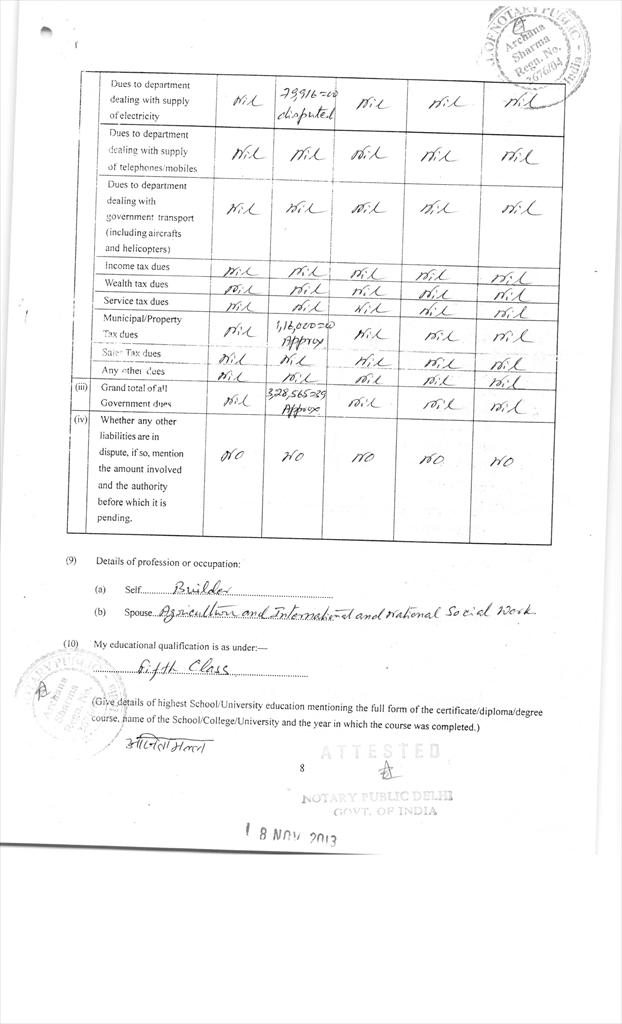 NOTARY PUBLIC
Archana
Sharma
Regn. No.
India
Dues to department
dealing with supply
of electricity
Nil
79,916=00
disputed
Nil
Nil
Nil
Dues to department
dealing with supply
of telephones/mobiles
Nil Nil Nil Nil Nil
Dues to department
dealing with
government transport
(including aircrafts
and helicopters)
Nil Nil Nil Nil Nil
Income tax dues Nil Nil Nil Nil Nil
Wealth tax dues Nil Nil Nil Nil Nil
Service tax dues Nil Nil Nil Nil Nil
Municipal/Property
Tax dues
Nil
1,16,000=00
Approx
Nil
Nil
Nil
Sale Tax dues Nil Nil Nil Nil Nil
Any other dues Nil Nil Nil Nil Nil
(iii) Grand total of all
Government dues
Nil
3,28,565=39
Approx
Nil
Nil
Nil
(iv) Whether any other
liabilities are in
dispute, if so, mention
the amount involved
and the authority
before which it is
pending.
NO NO NO NO NO
(9) Details of profession or occupation:
(a) Self Builder
(b) Spouse Agriculture and International and National Social Work
(10) My educational qualification is as under:—
Fifth Class
(Give details of highest School/University education mentioning the full form of the certificate/diploma/degree
course, name of the School/College/University and the year in which the course was completed.)
NOTARY PUBLIC
Archana
Sharma
Regn. No.
ATTESTED
8
NOTARY PUBLIC DELHI
GOVT. OF INDIA
18 NOV 2013